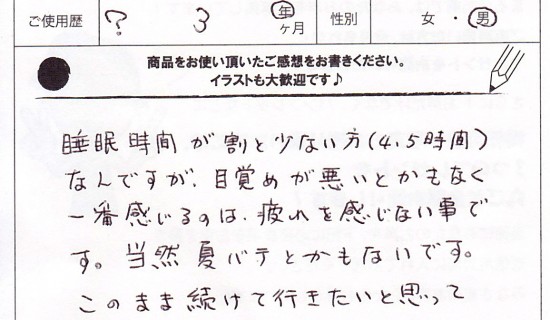 ご使用歴 ? 3 年 ヶ月 性別 女・男
商品をお使い頂いたご感想をお書きください。
イラストも大歓迎です♪
睡眠時間が割と少ない方(4.5時間)
なんですが、目覚めが悪いとかもなく
一番感じるのは、疲れを感じない事で
す。当然夏バテとかもないです。
このまま続けて行きたいと思って